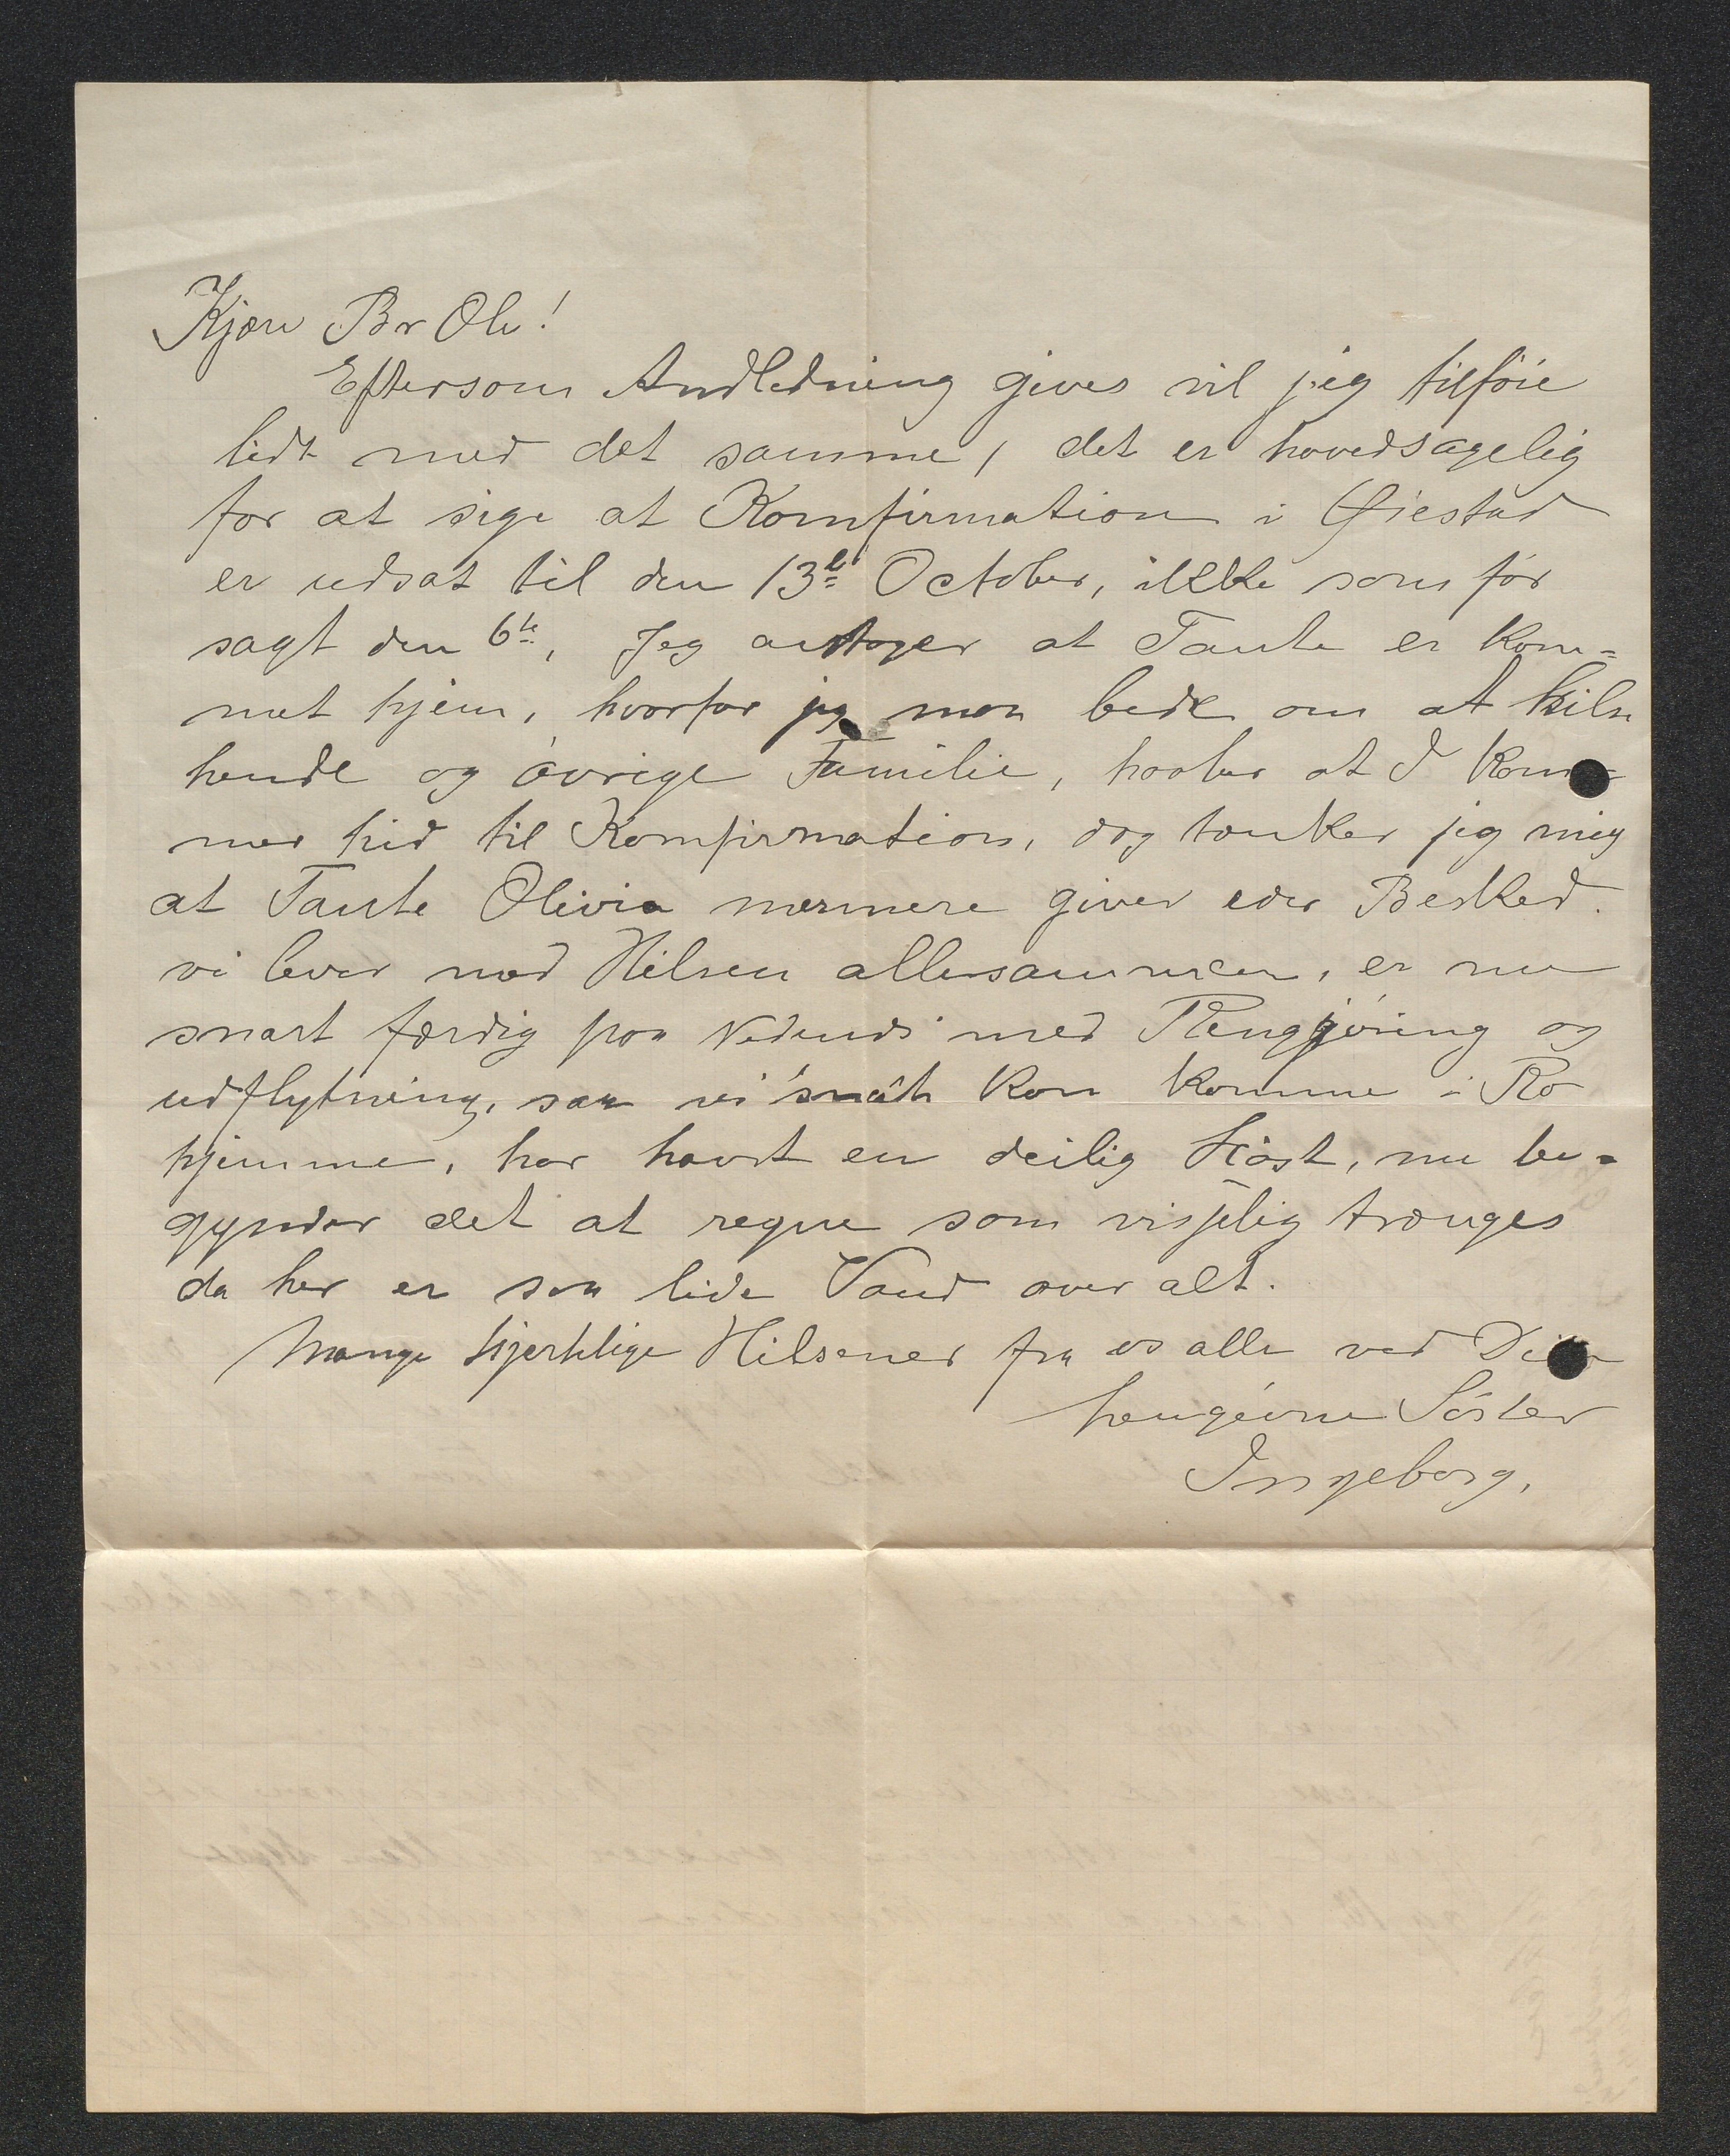 Kjære Br Ole!
Eftersom Andledning gives vil jeg tilföie
lidt med det samme, det er hovedsagelig
for at sige at Komfirmation i Øiestad
er udsat til den 13de October, ikke som før
sagt den 6te, Jeg antager at Tante er kom=
met hjem, hvorfor jeg maa bede om at hilse
hende og övrige Familie, haaber at I kom
mer hid til Komfirmation, dog tænker jeg mig
at Tante Olivia nærmere giver eder Besked.
vi lever med Hilsen allesammen, er nu
snart færdig paa Nedenæs med Rengjöring og
udflytning, saa vi snart kan komme i Ro
hjemme, har havt en deilig Höst, nu be=
gynder det at regne som visselig trænges
da her er saa lide Vand over alt.
Mange hjertelige Hilsener fra os alle ved Din
hengivne Söster
Ingeborg,